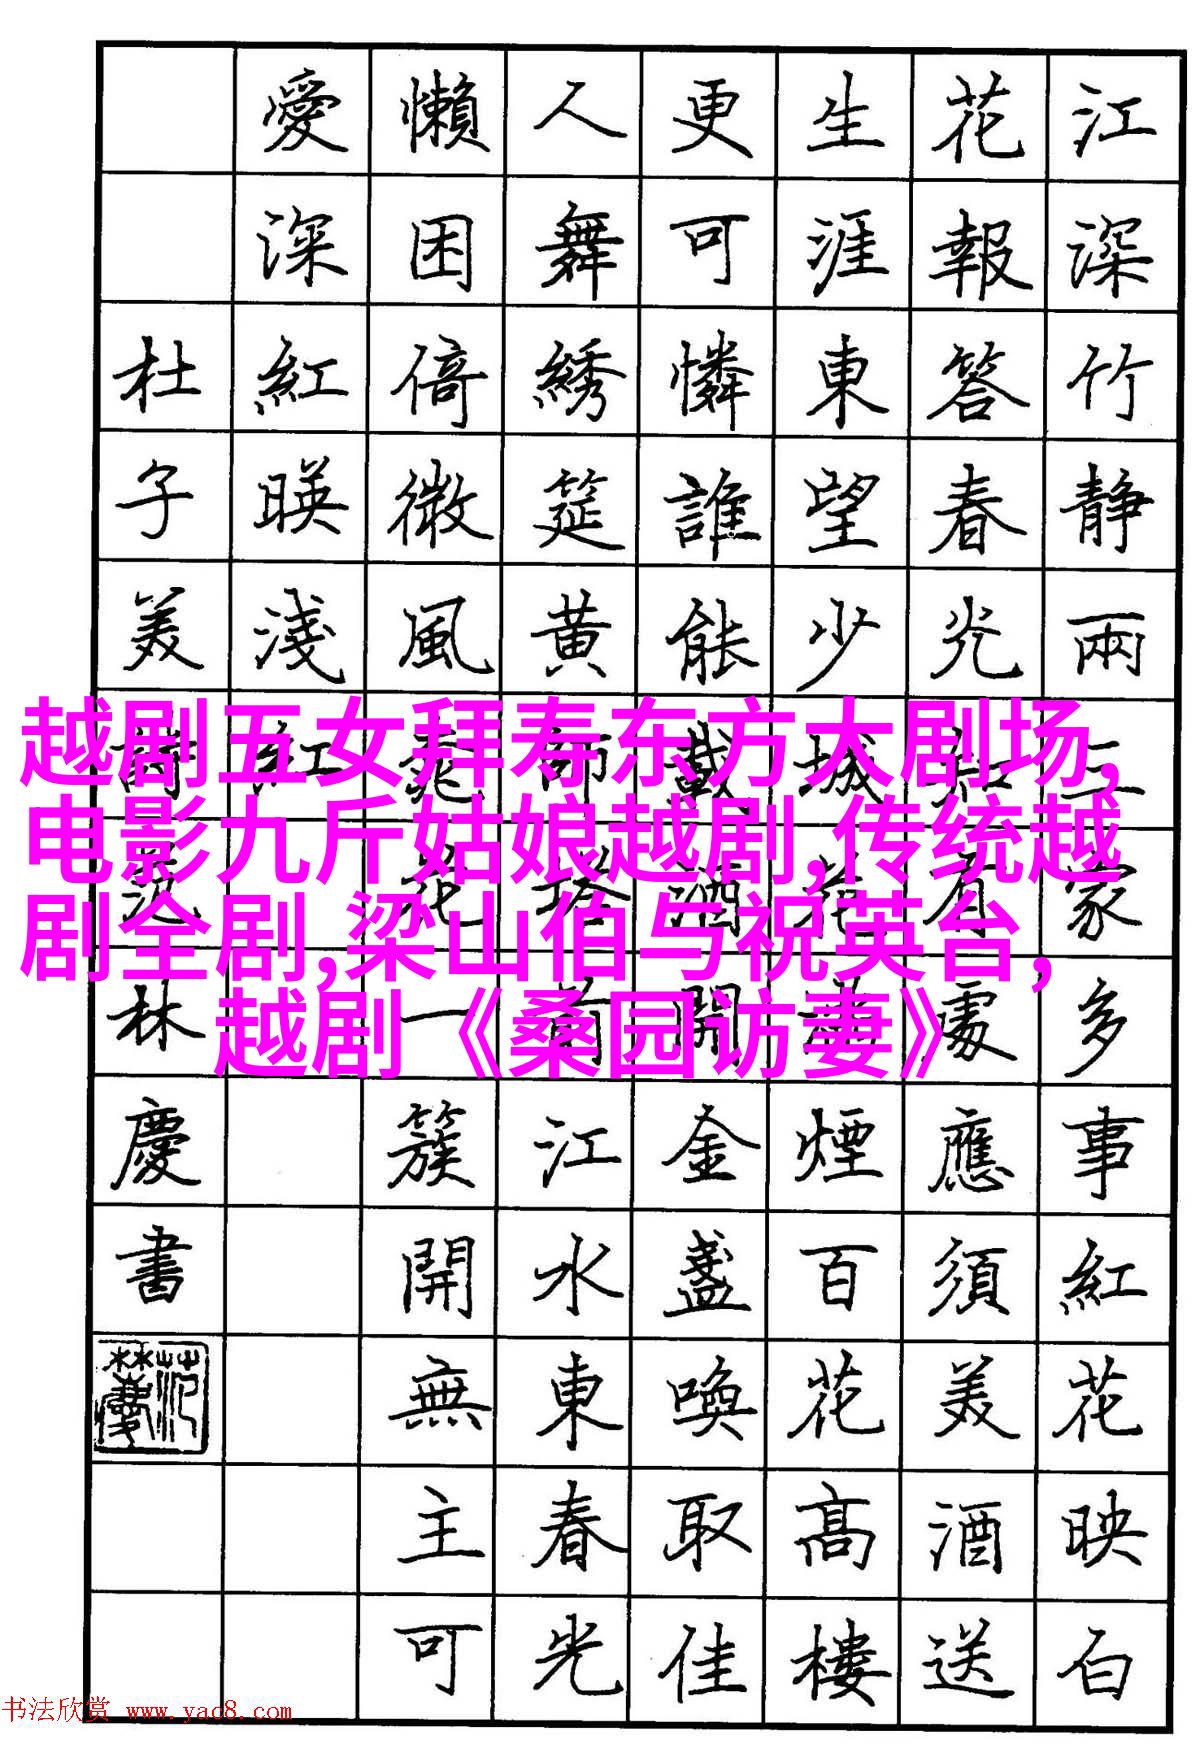 江深竹静兩三家多事紅花映白
花報答春光知有處應須美酒送
生涯東望少城花滿煙百花高樓
更可憐誰能載酒開金盞喚取佳
人舞綉筵黄師塔前江水東春光
懶困倚微風桃花一簇開無主可
愛深紅暎淺紅
杜子美詩范林慶書
越剧五女拜寿东方大剧场,
电影九斤姑娘越剧,传统越
剧全剧,梁山伯与祝英台,
越剧《桑园访妻》
书法欣赏 www.yac8.com